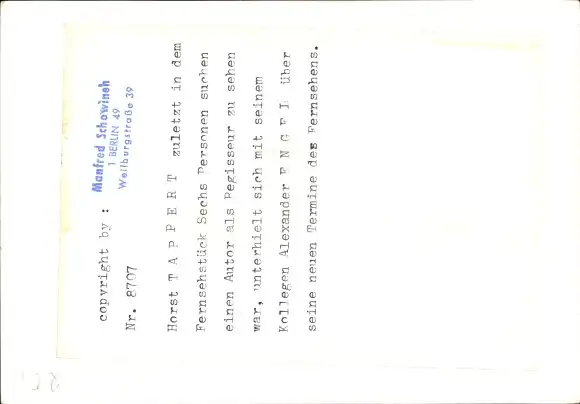 copyright by :
Manfred Schowineh
1 BERLIN 49
Weilburgstraße 39
Nr. 8707
Horst T A P P E R T zuletzt in dem
Fernsehstück Sechs Personen suchen
einen Autor als Regisseur zu sehen
war, unterhielt sich mit seinem
Kollegen Alexander E N G E L über
seine neuen Termine des Fernsehens.